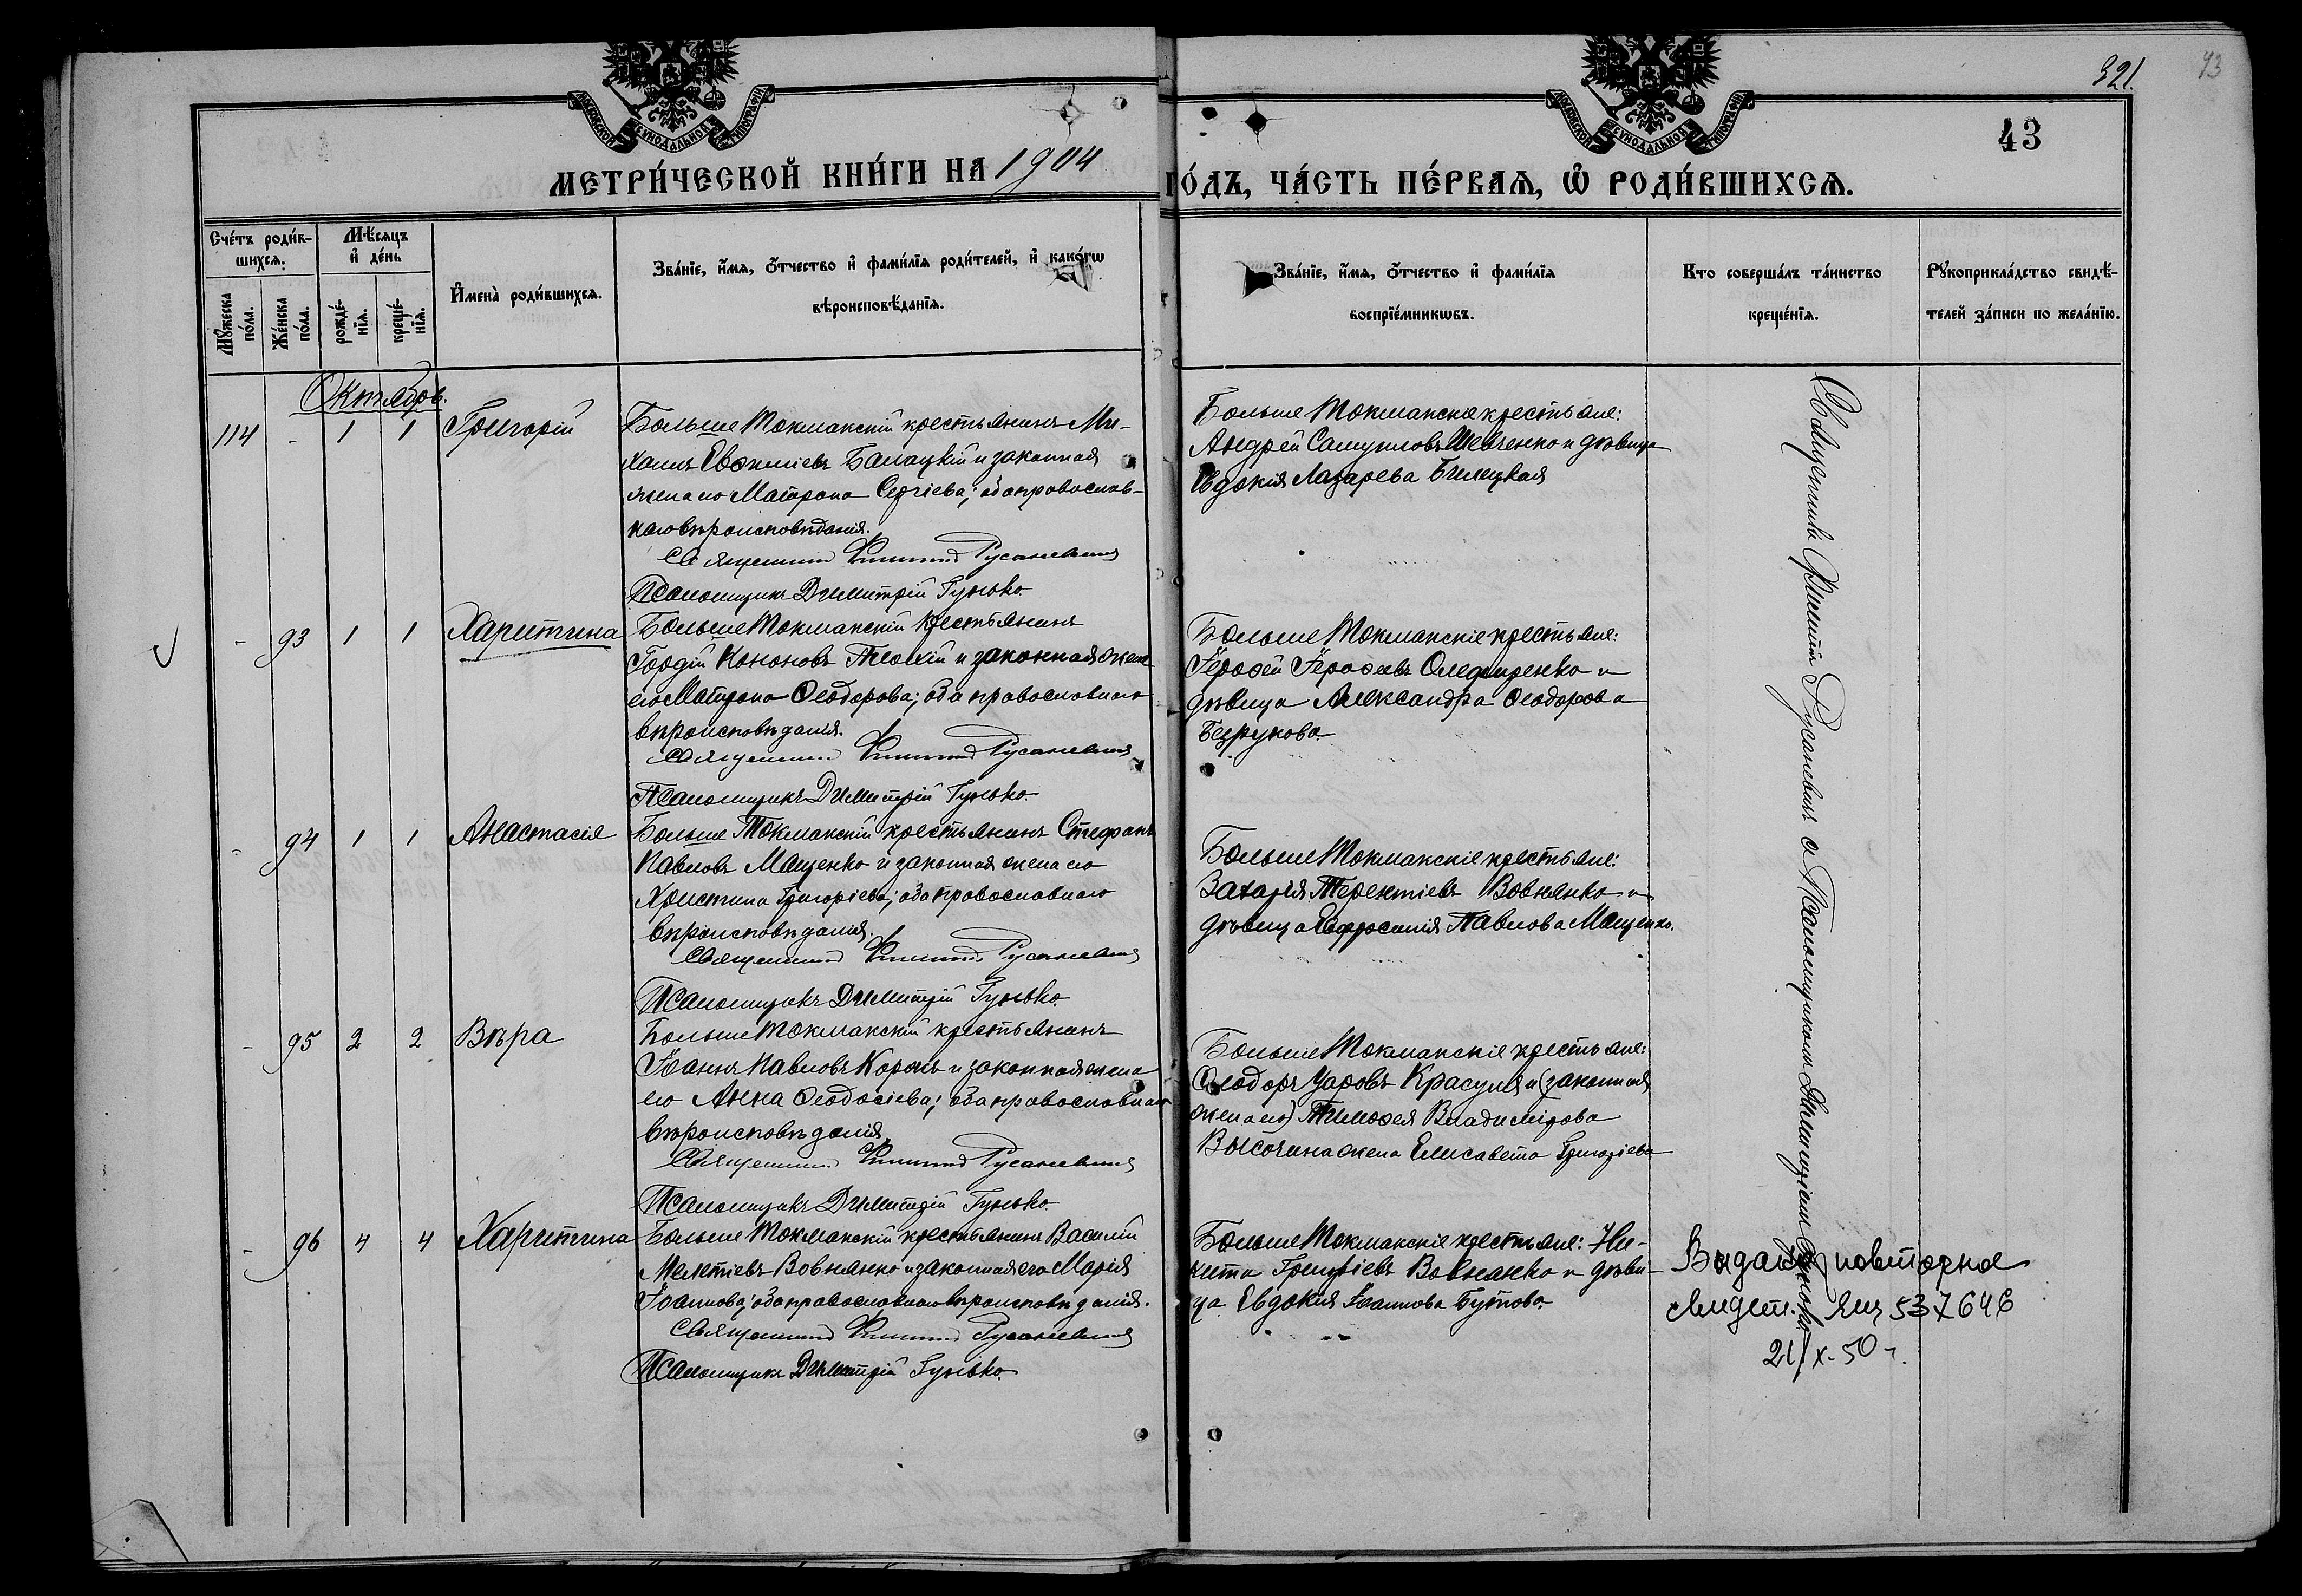 321.
93
43
МОСКОВСКОЙ СѴНОДАЛЬНОЙ ТИПОГРАФІИ
МОСКОВСКОЙ СѴНОДАЛЬНОЙ ТИПОГРАФІИ
МЕТРИ́ЧЕСКОЙ КНИ́ГИ НА 1904
ГО́ДЪ, ЧА́СТЬ ПЕ́РВАѦ, Ѽ РОДИ́ВШИХСѦ.
Сче́тъ роди́в-
шихсѧ.
Мѣ́сяцъ
и҆ де́нь
Мꙋ́жеска
по́ла.
Же́нска
по́ла.
рожде́-
нїѧ.
креще́-
нїѧ.
И҆мена̀ роди́вшихсѧ.
Зва́нїе, и҆́мѧ, ѻ҆́тчество и҆ фами́лїѧ роди́телей, и҆ како́гѡ
вѣроисповѣ́данїѧ.
Зва́нїе, и҆́мѧ, ѻ҆́тчество и҆ фами́лїѧ
воспрїе́мникѡвъ.
Кто соверша́лъ та́инство
креще́нїѧ.
Рꙋкоприкла́дство свидѣ́-
телей за́писи по жела́нїю.
Октябрь.
114 - 1 1 Григорій
Больше Токмакскій крестьянинъ Ми-
хаилъ Евфиміевъ Балацкій и законная
жена его Матрона Сергіева; оба православ-
наго вѣроисповѣданія.
Священникъ Филиппъ Русаневичъ
Псаломщикъ Димитрій Гунько.
Больше Токмакскіе крестьяне:
Андрей Самуиловъ Шевченко и дѣвица
Евдокія Лазарева Билецкая
- 93 1 1 Харитина
Больше Токмакскій крестьянинъ
Гордій Кононовъ Плохій и законная жена
его Матрона Ѳеодорова; оба православнаго
вѣроисповѣданія.
Священникъ Филиппъ Русаневичъ
Псаломщикъ Димитрій Гунько.
Больше Токмакскіе крестьяне:
Іероѳей Іероѳеевъ Олефиренко и
дѣвица Александра Ѳеодорова
Безрукова.
- 94 1 1 Анастасія
Больше Токмакскій крестьянинъ Стефанъ
Павловъ Мащенко и законная жена его
Христина Григоріева; оба православнаго
вѣроисповѣданія.
Священникъ Филиппъ Русаневичъ
Псаломщикъ Димитрій Гунько.
Больше Токмакскіе крестьяне:
Захарія Терентіевъ Вовнянко и
дѣвица Евфросинія Павлова Мащенко.
- 95 2 2 Вѣра
Больше Токмакскій крестьянинъ
Іоаннъ Павловъ Коржъ и законная жена
его Анна Ѳеодосіева; оба православнаго
вѣроисповѣданія.
Священникъ Филиппъ Русаневичъ
Псаломщикъ Димитрій Гунько.
Больше Токмакскіе крестьяне:
Ѳеодоръ Уаровъ Красуля и (законная
жена его) Тимоѳея Владимірова
Высочина жена Елисавета Григоріева
- 96 4 4 Харитина
Больше Токмакскій крестьянинъ Василій
Мелетіевъ Вовнянко и законная его Марія
Іоаннова; оба православнаго вѣроисповѣданія.
Священникъ Филиппъ Русаневичъ
Псаломщикъ Димитрій Гунько.
Больше Токмакскіе крестьяне: Ни-
кита Григоріевъ Вовнянко и дѣви-
ца Евдокія Іоаннова Бутова
Священникъ Филиппъ Русаневичъ съ Псаломщикомъ Димитріемъ Гунько.
повторное
537646
21/X-50 г.